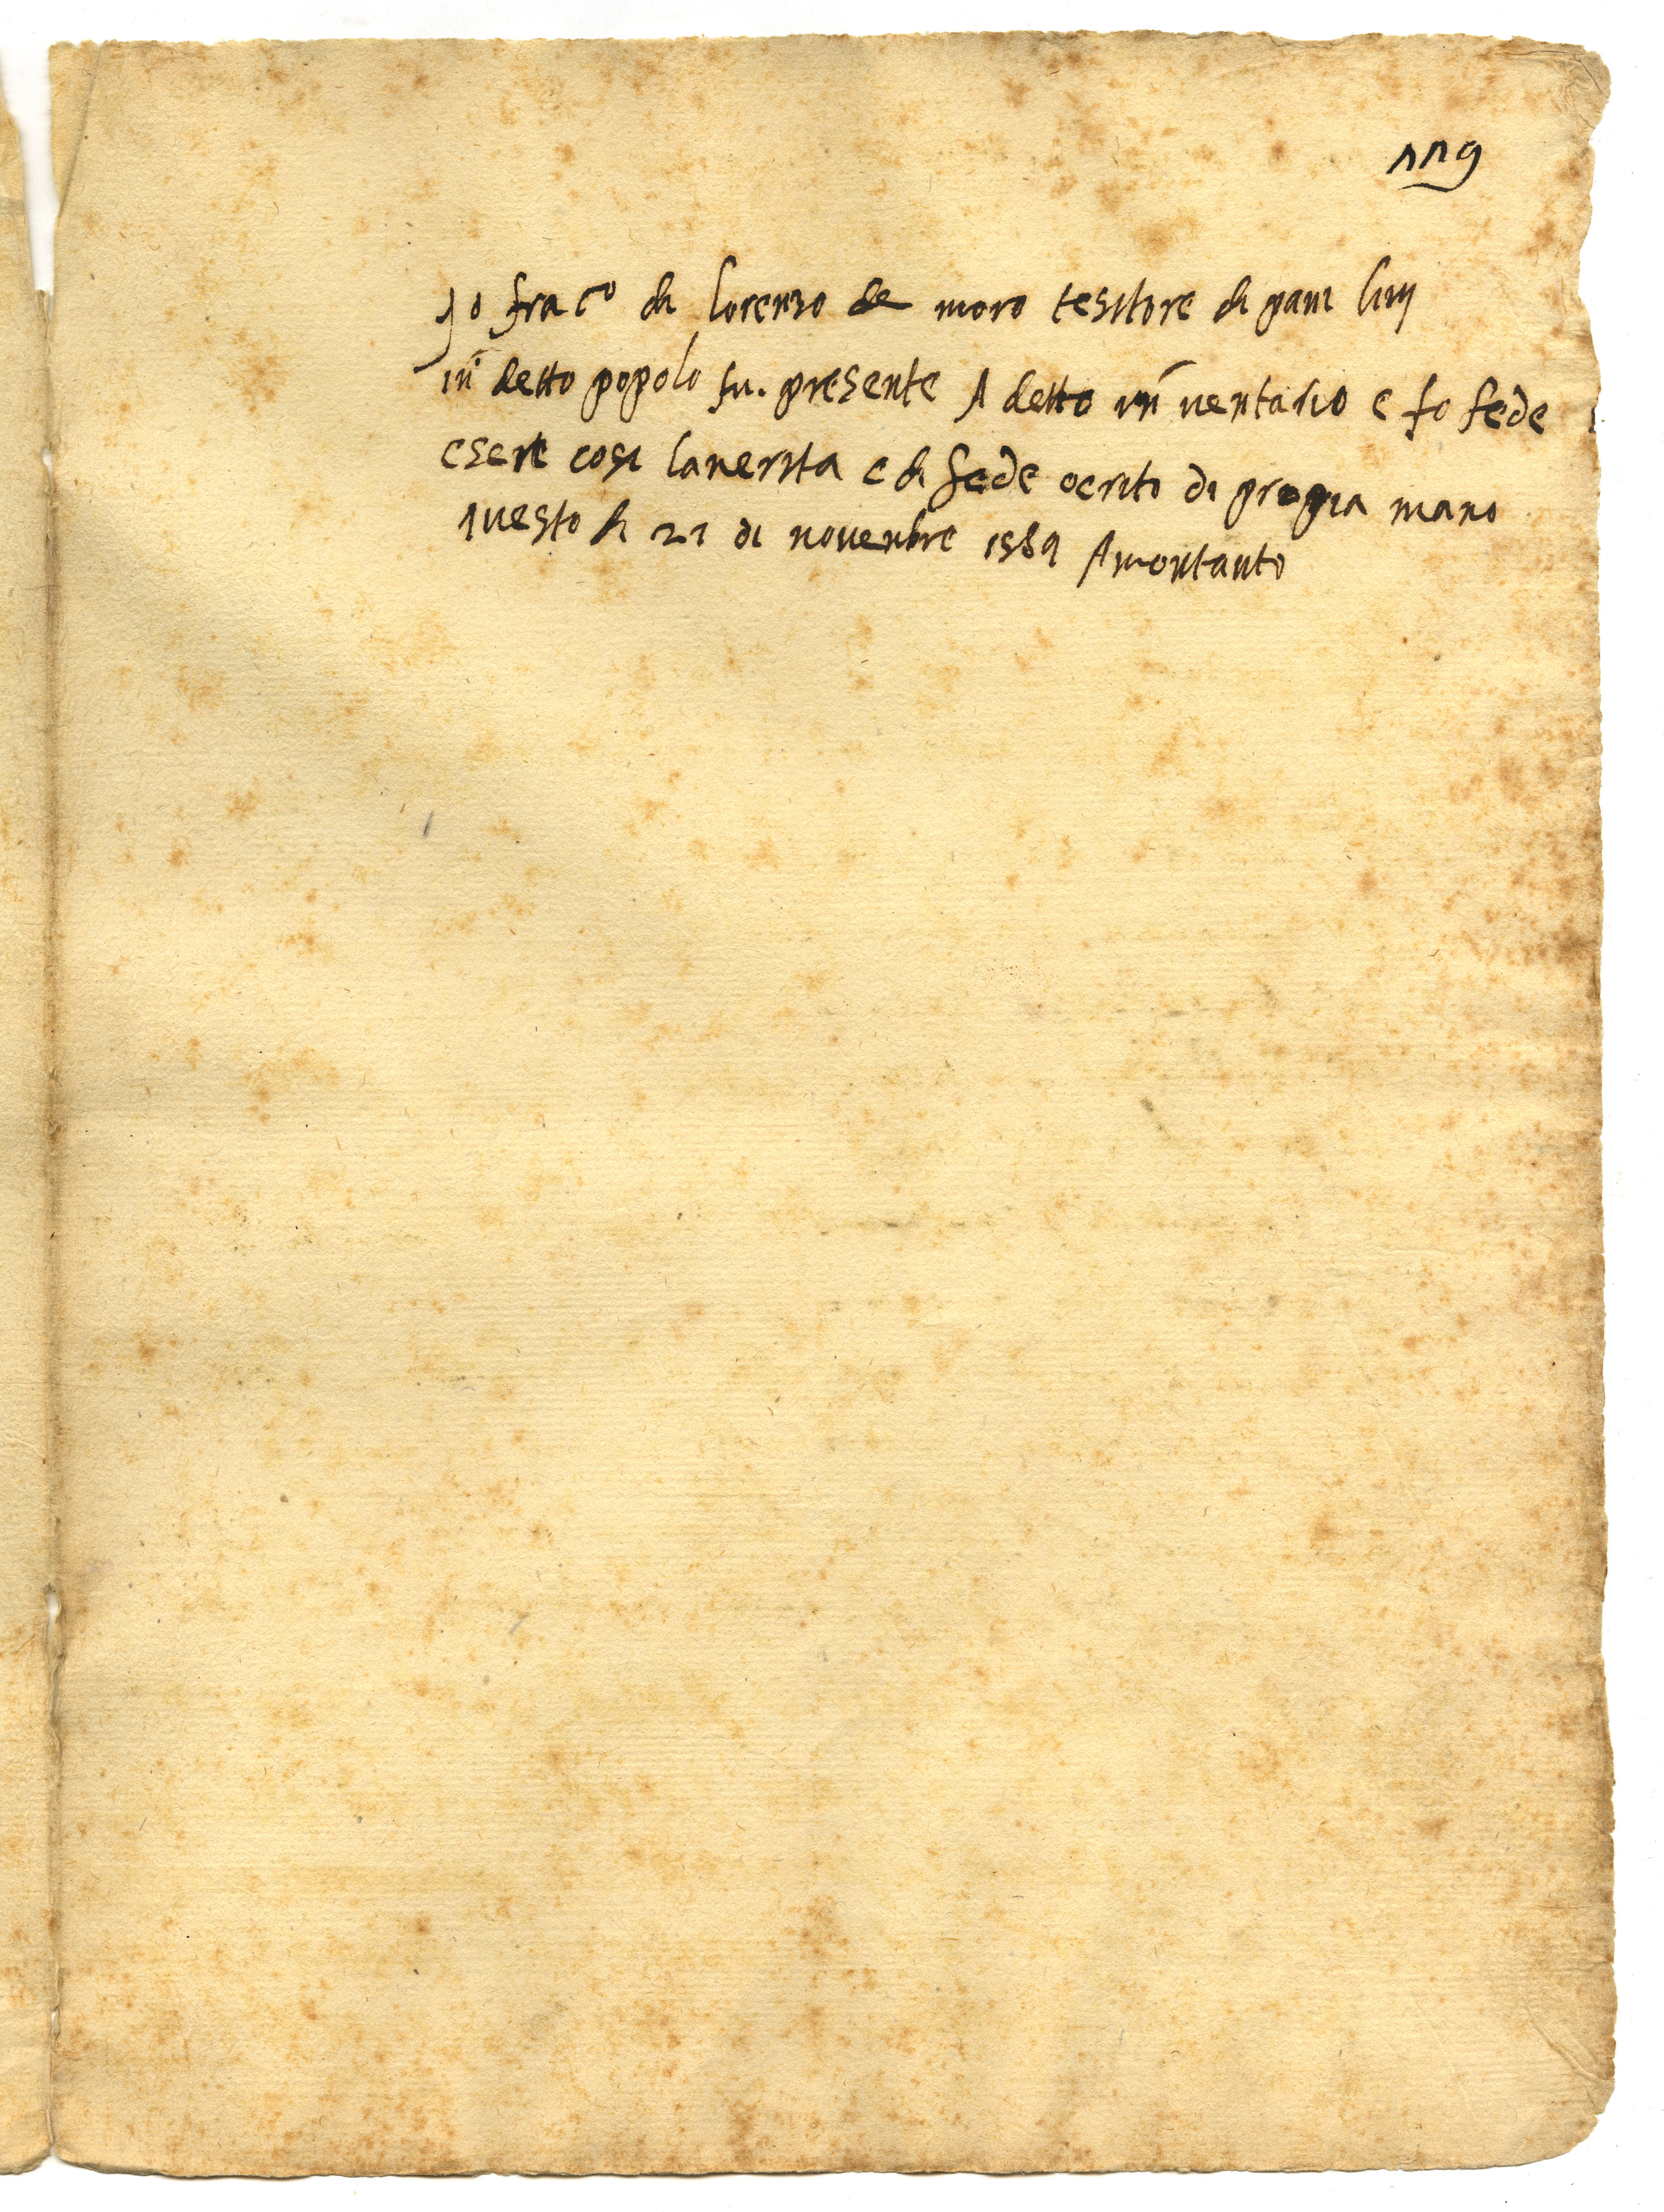 119
Jo fra co di lorenzo de moro tesitore di pani lini
in detto popolo fu. presente A detto in uentario e fo fede
esere cosi lauerita e di fede oc rito di propia mano
questo di 21 di nouenbre 1589 A montauto